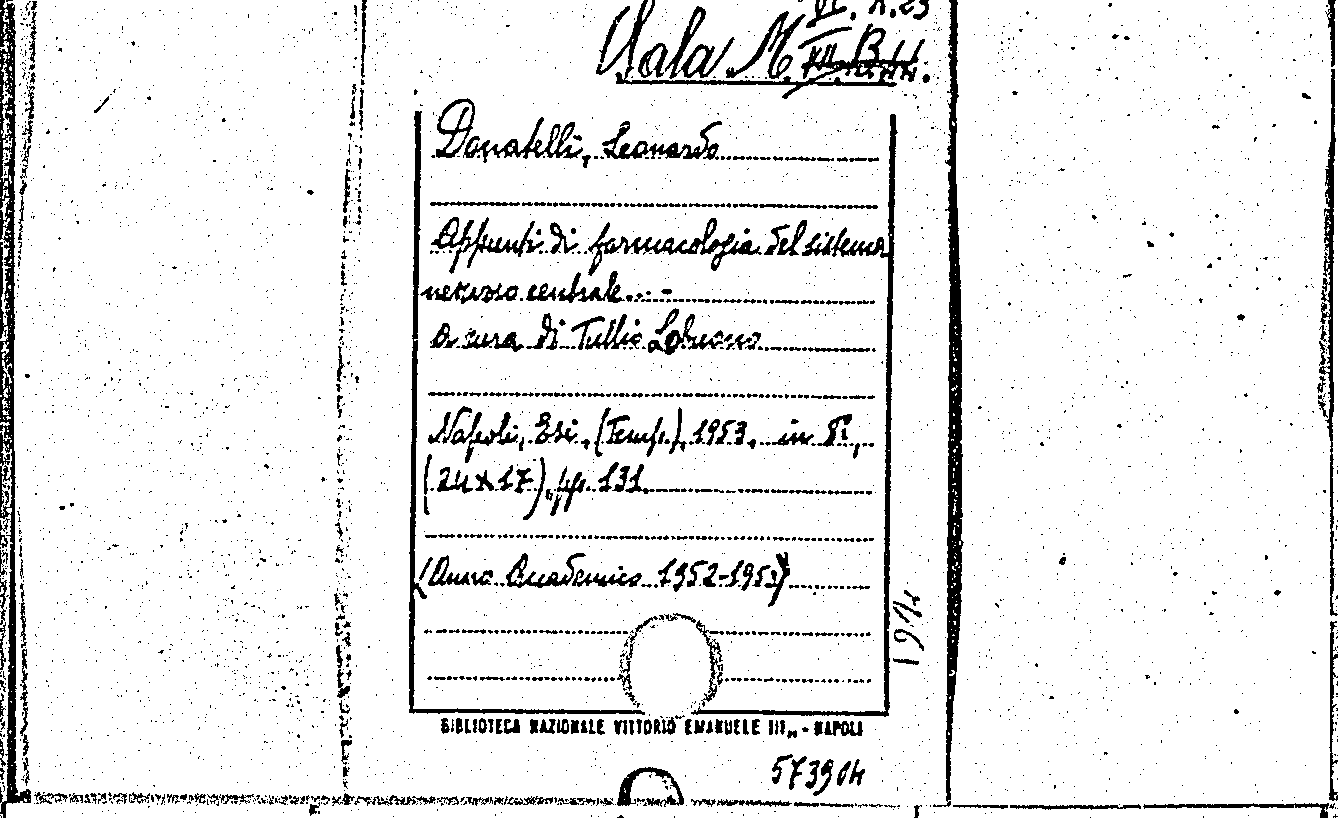 VI. A. 23
Sala M.
Donatelli, Leonardo
Appunti di farmacologia del sistema
nervoso centrale... -
a cura di Tullio
Napoli, Esi, (Temp.), 1953, in 8º,
(24x17), pp. 131.
(Anno Accademico 1952-1953)
BIBLIOTECA NAZIONALE VITTORIO EMANUELE III„ - NAPOLI